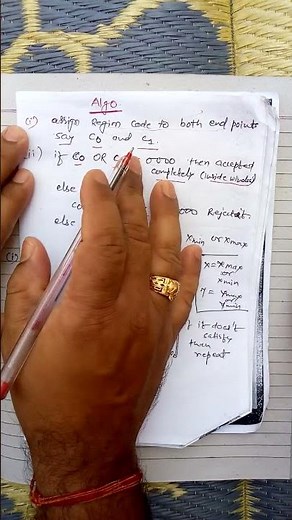 Algo.
(i) assign Region Code to both end points
say C0 and C1.
ii) if C0 OR C 0000 then accepted
completely (inside window)
else
co 000 Reject
else
xmin or xmax
x = xmax
or
xmin
y = ymax
ymin
if doesn't
satisfy
then
repeat